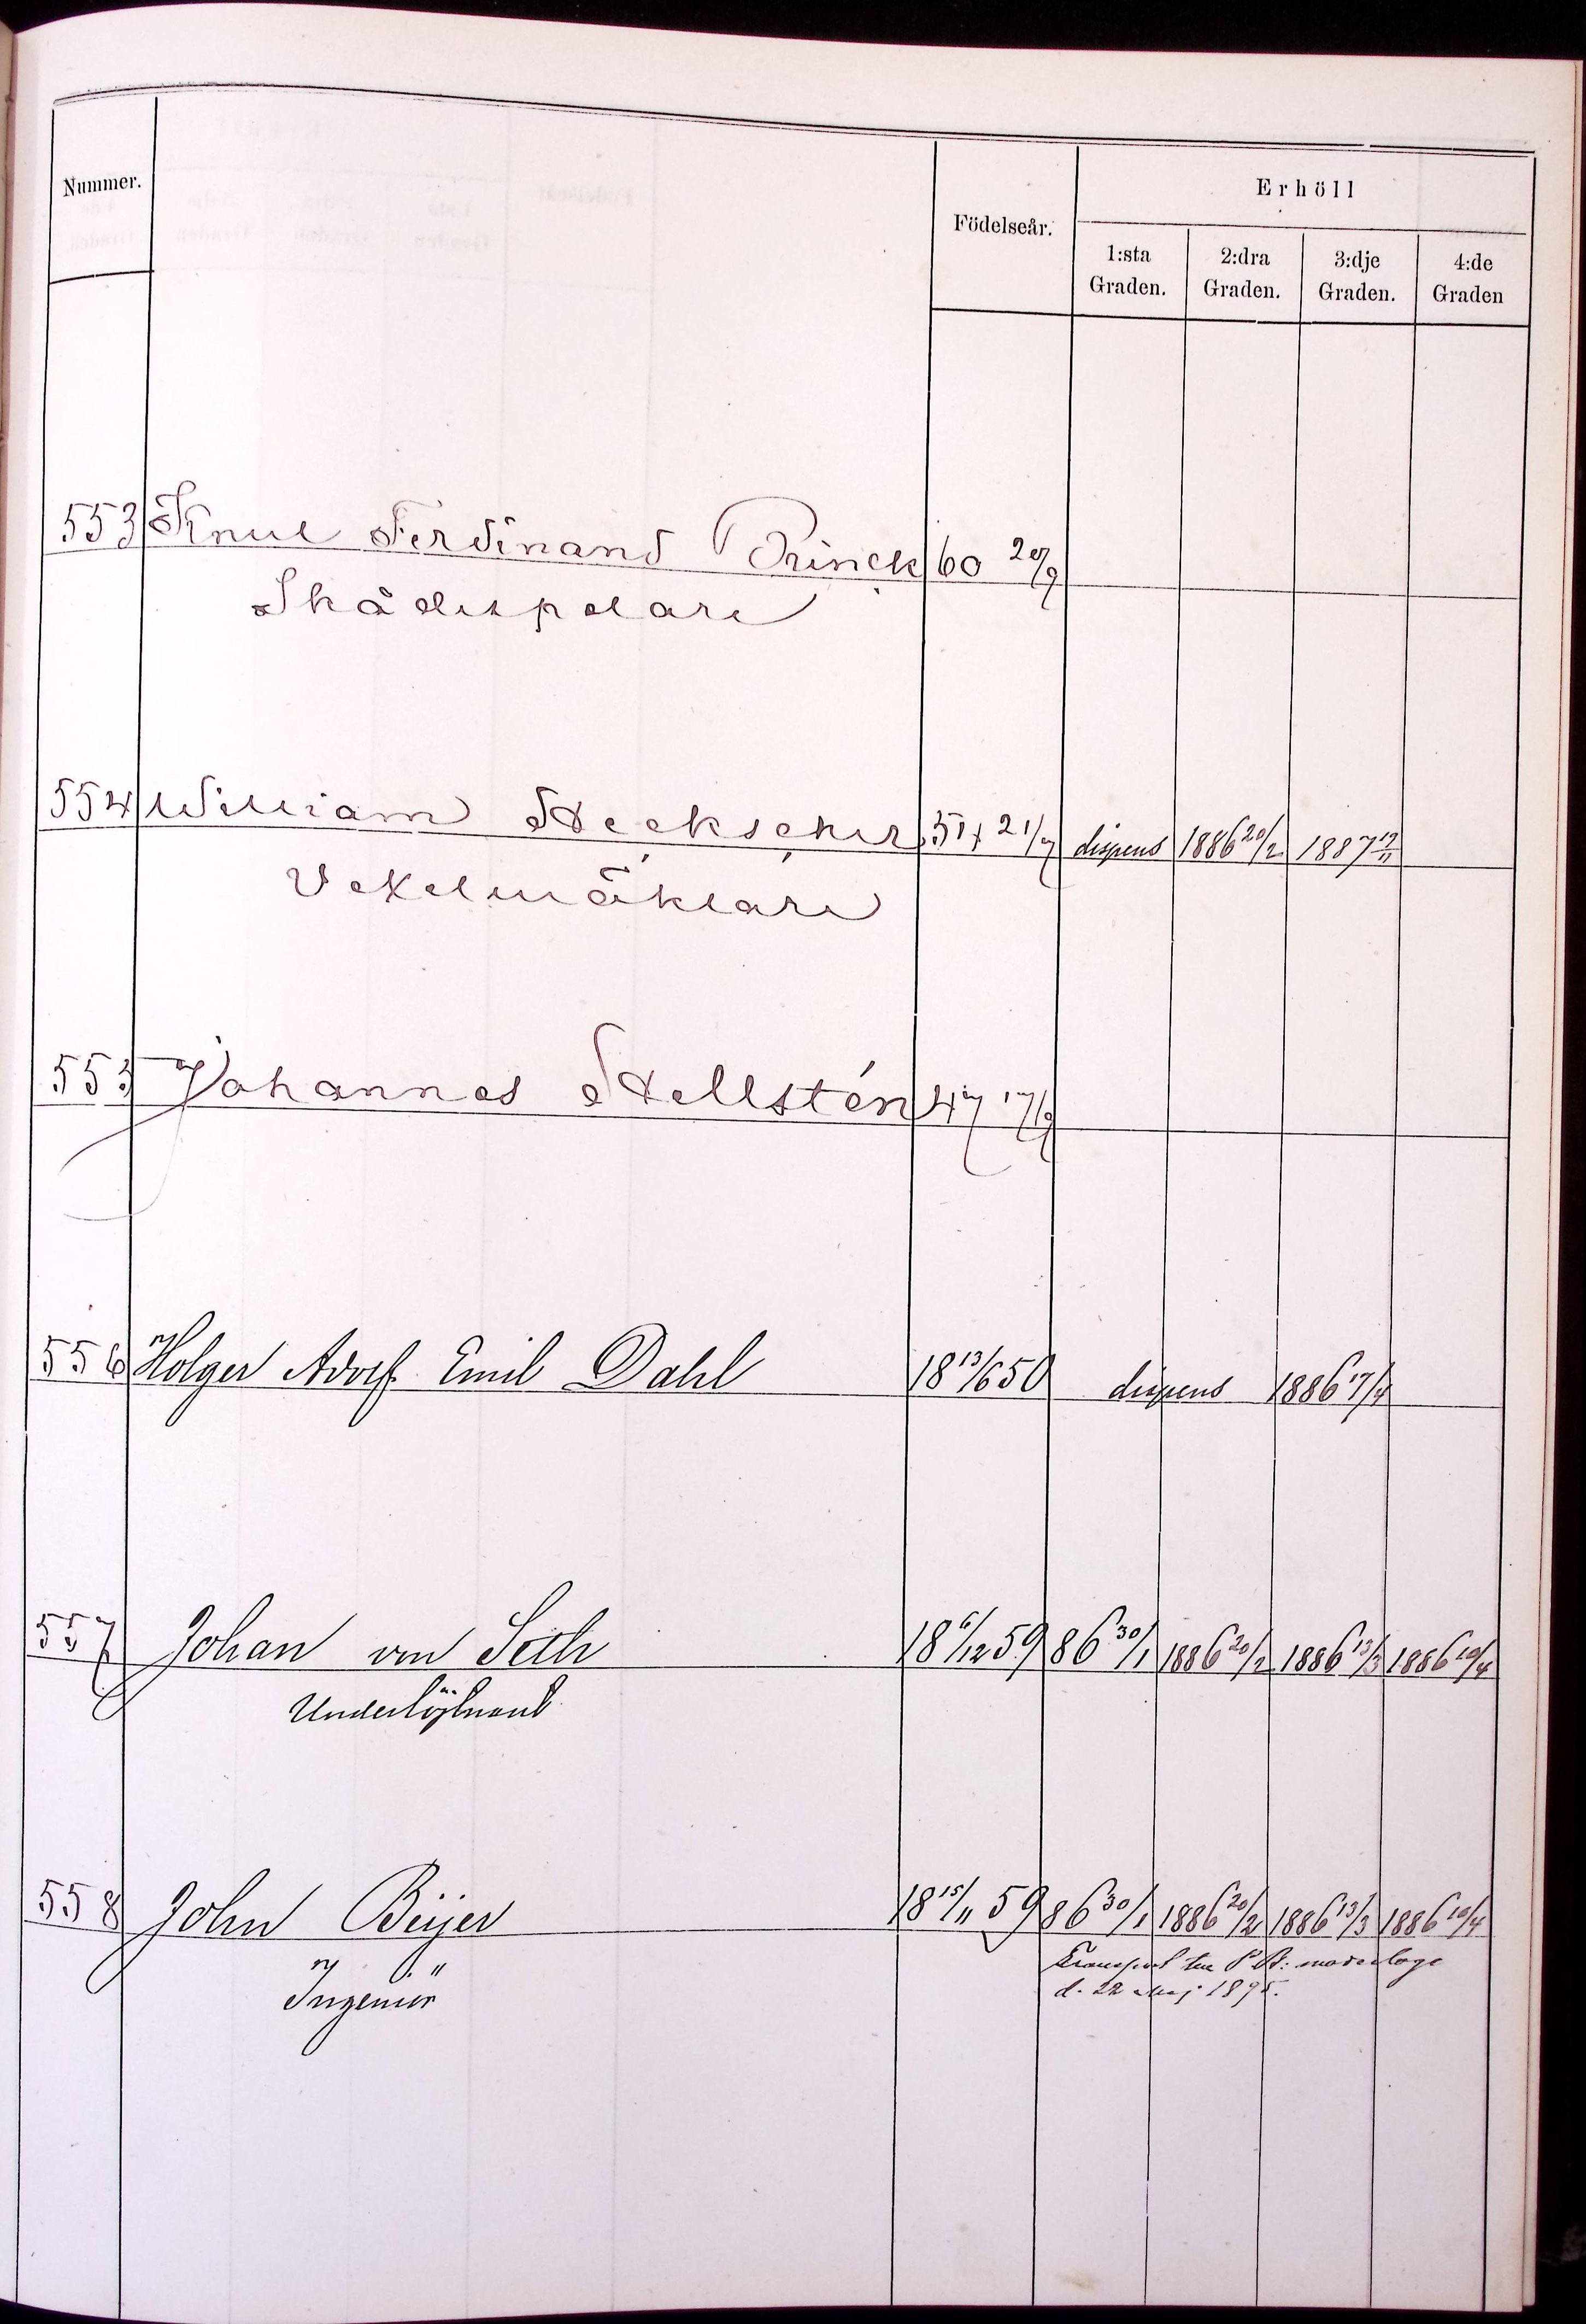 Nummer.
Födelseår.
Erhöll
1:sta Graden.
2:dra Graden.
3:dje Graden.
4:de Graden
553 Knut Ferdinand Princk 60 20/9
Skådespelare
554 William Heckscher 51 21/7 dispens 1886 20/2 1887
Vexelmäklare
555 Johannes Hellstén 47 17/9
556 Holger Adolf Emil Dahl 18 13/6 50 dispens 1886 17/4
557 Johan von Seth 18 6/12 59 86 30/1 1886 20/2 1886 13/3 1886 10/4
Underlöjtnant
558 John Beijer 18 15/11 59 86 30/1 1886 20/2 1886 13/3 1886 10/4
Ingeniör
Transport moderloge
d. 22 Maj 1895.